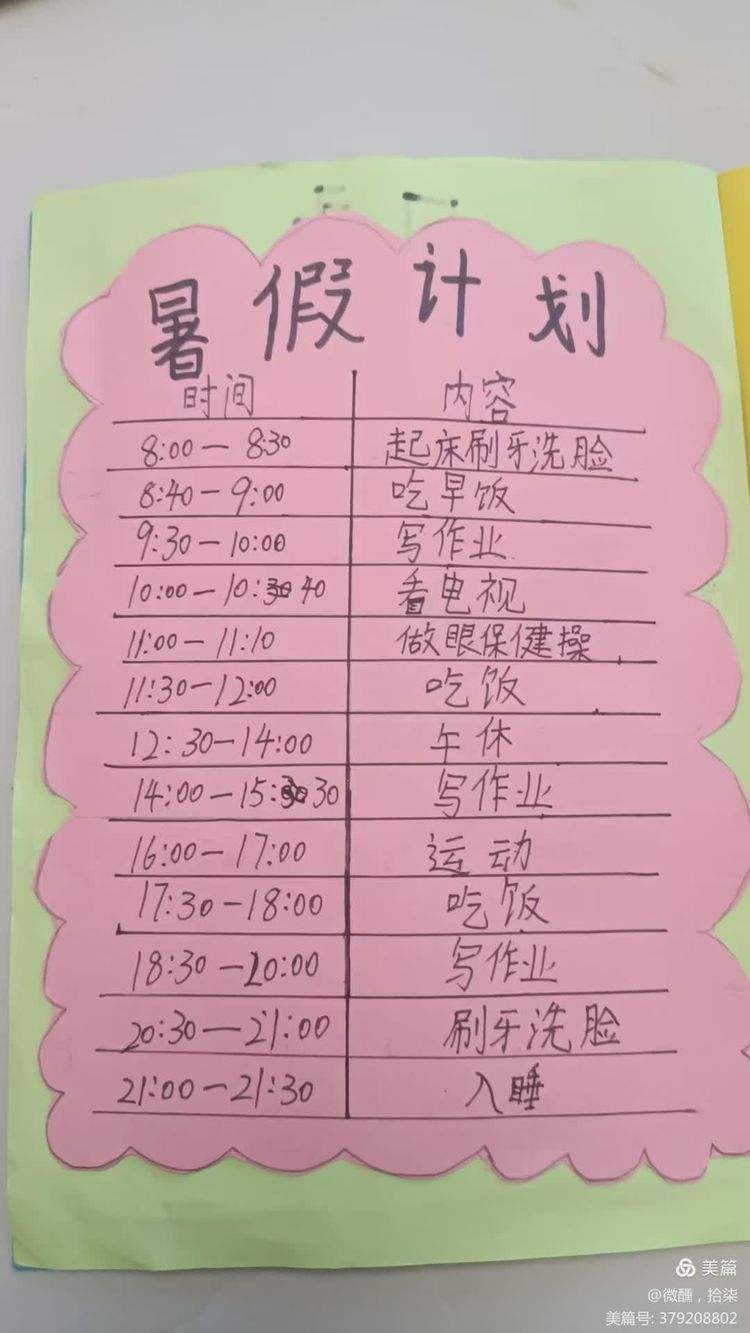 暑假计划
时间 内容
8:00—8:30 起床刷牙洗脸
8:40—9:00 吃早饭
9:30—10:00 写作业
10:00—10:40 看电视
11:00—11:10 做眼保健操
11:30—12:00 吃饭
12:30—14:00 午休
14:00—15:30 写作业
16:00—17:00 运动
17:30—18:00 吃饭
18:30—20:00 写作业
20:30—21:00 刷牙洗脸
21:00—21:30 入睡
美篇
@微醺，拾柒
美篇号: 379208802